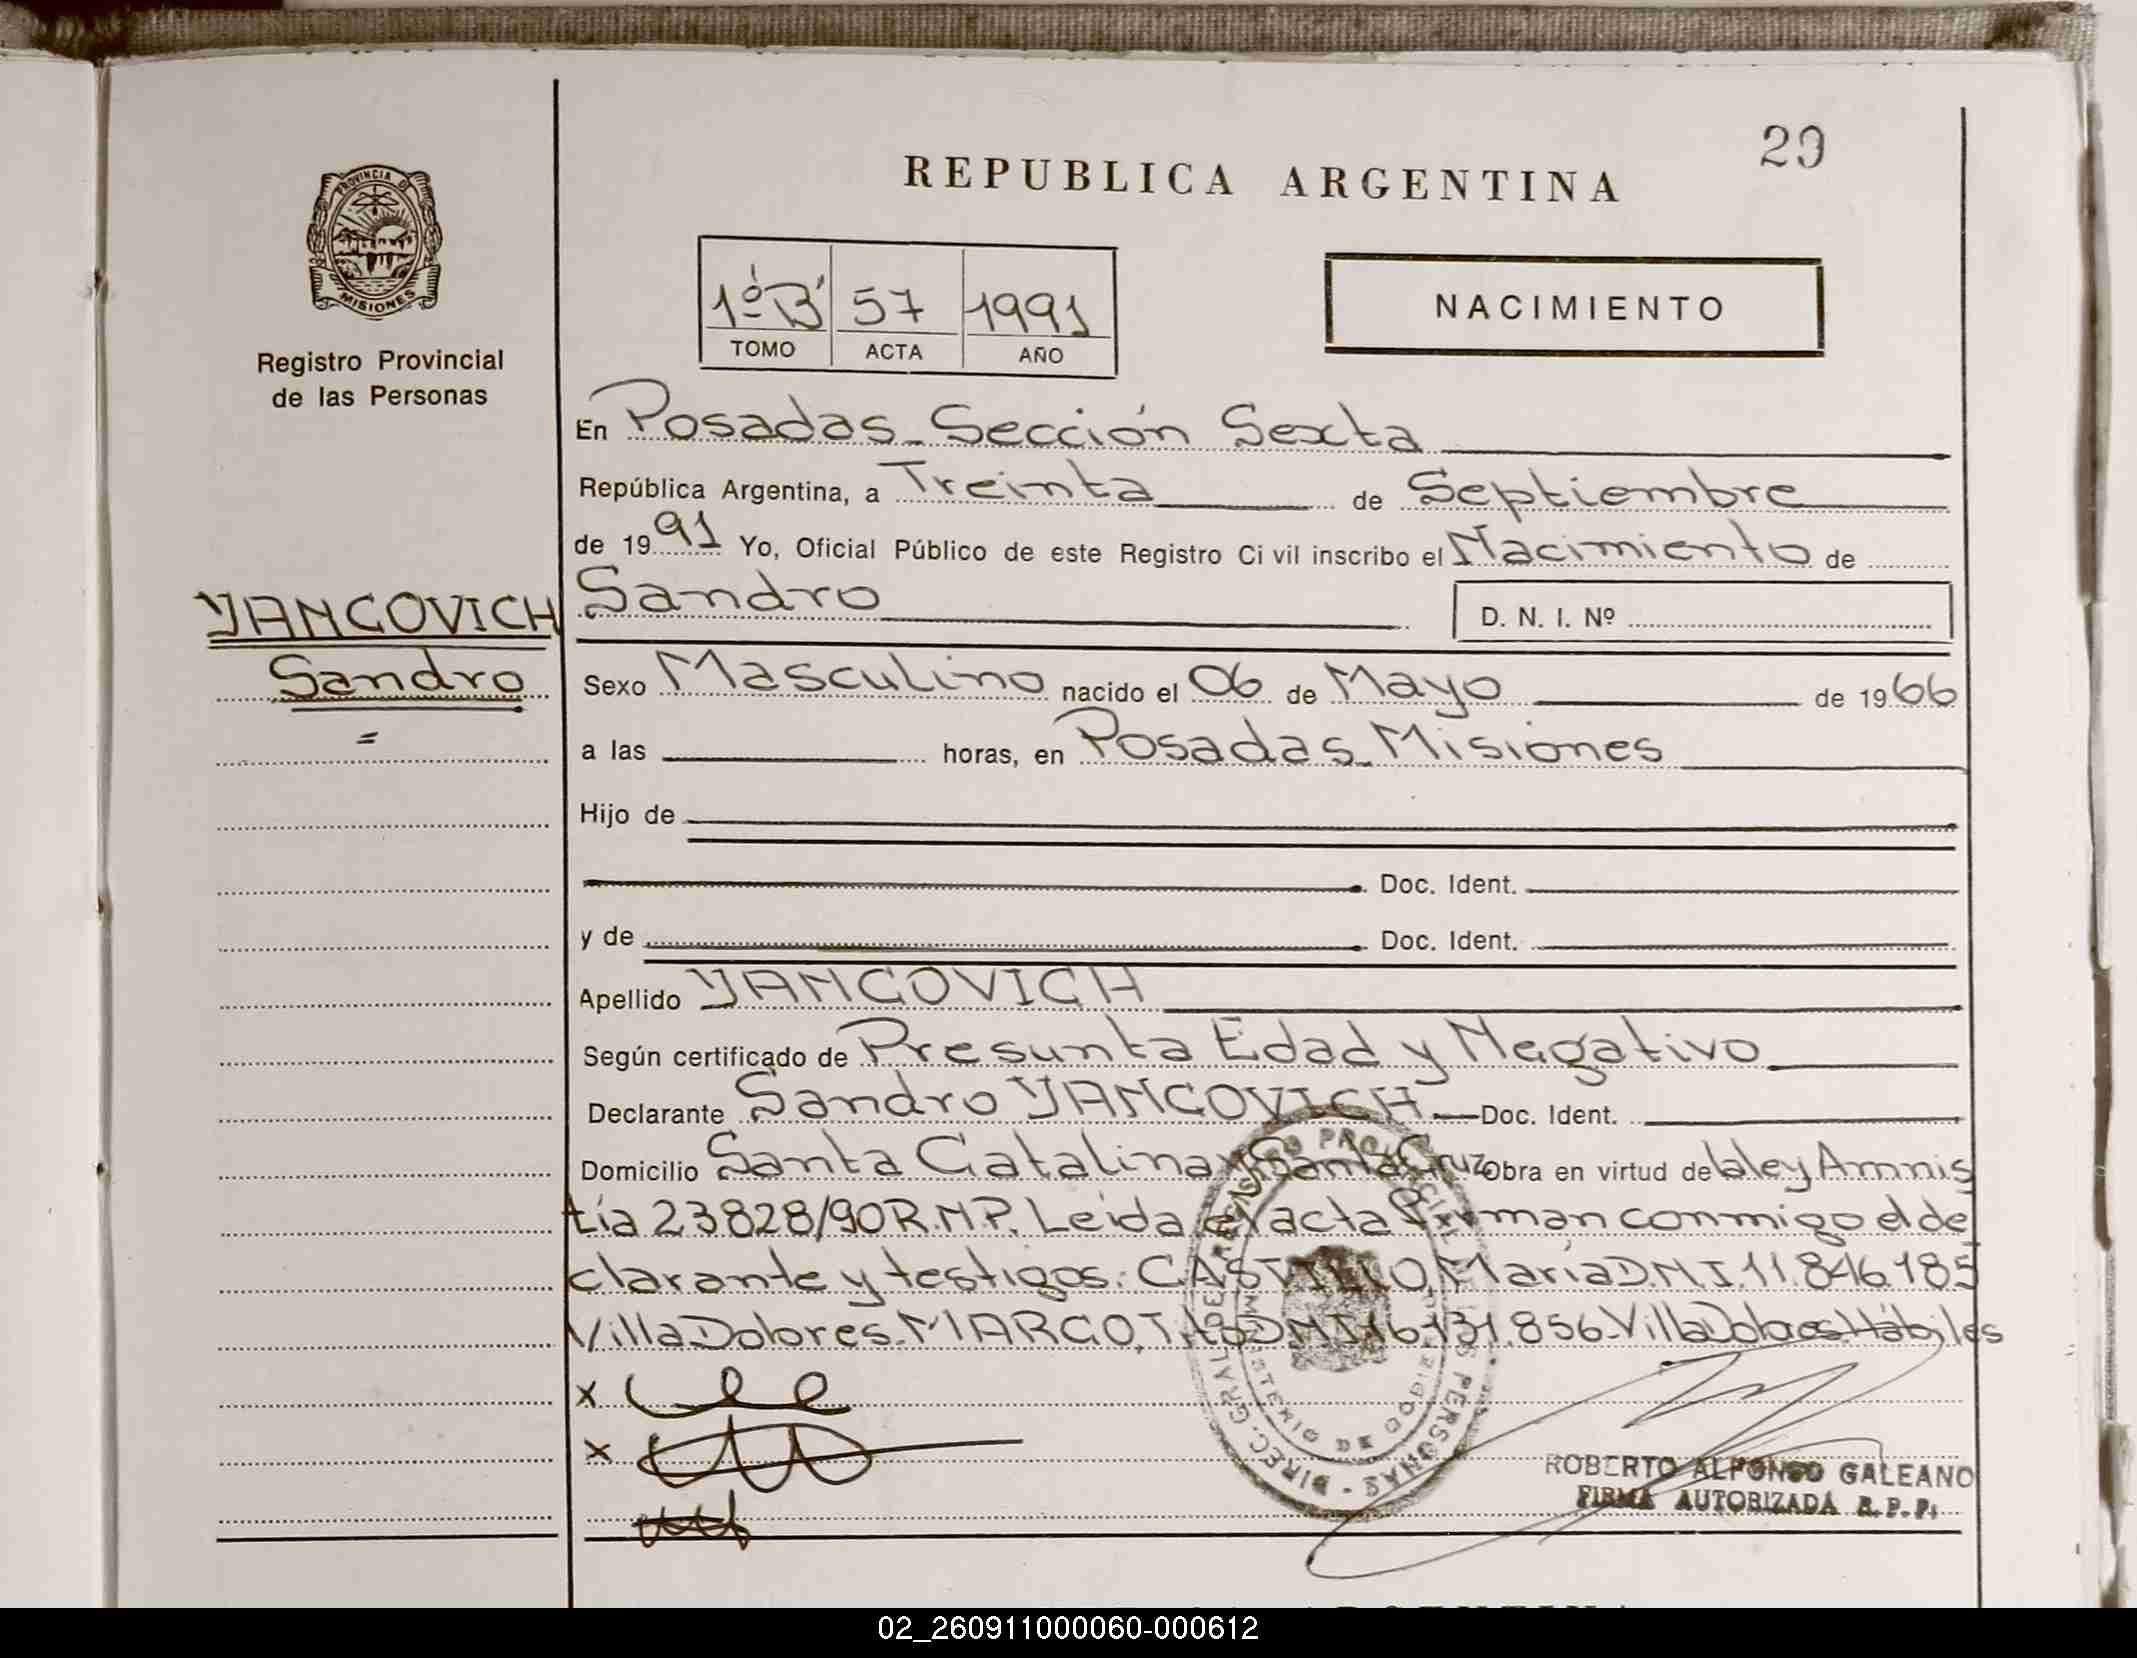 29
REPUBLICA ARGENTINA
PROVINCIA DE
MISIONES
Registro Provincial
de las Personas
1º B' 57 1991
TOMO ACTA AÑO
NACIMIENTO
En Posadas Sección Sexta
República Argentina, a Treinta de Septiembre
de 1991 Yo, Oficial Público de este Registro Civil inscribo el Nacimiento de
YANCOVICH
Sandro
=
Sandro
D. N. I. Nº
Sexo Masculino nacido el 06 de Mayo de 1966
a las horas, en Posadas Misiones
Hijo de
Doc. Ident.
y de Doc. Ident.
Apellido YANCOVICH
Según certificado de Presunta Edad y Negativo
Declarante Sandro YANCOVICH Doc. Ident.
Domicilio Santa Catalina y Santa Cruz Obra en virtud de la ley Amnis
tía 23828/90 R.N.P. Leida el acta firman conmigo el de
clarante y testigos: CASTILLO, María D.N.I. 11.846.185
Villa Dolores. MARGO, D.N.I 16.131.856. Villa Dolores Hábiles
x
x
DIREC. GRAL. DE REGISTRO PROVINCIAL DE LAS PERSONAS
MINISTERIO DE GOBIERNO
ROBERTO ALFONSO GALEANO
FIRMA AUTORIZADA R. P. P.
02_260911000060-000612